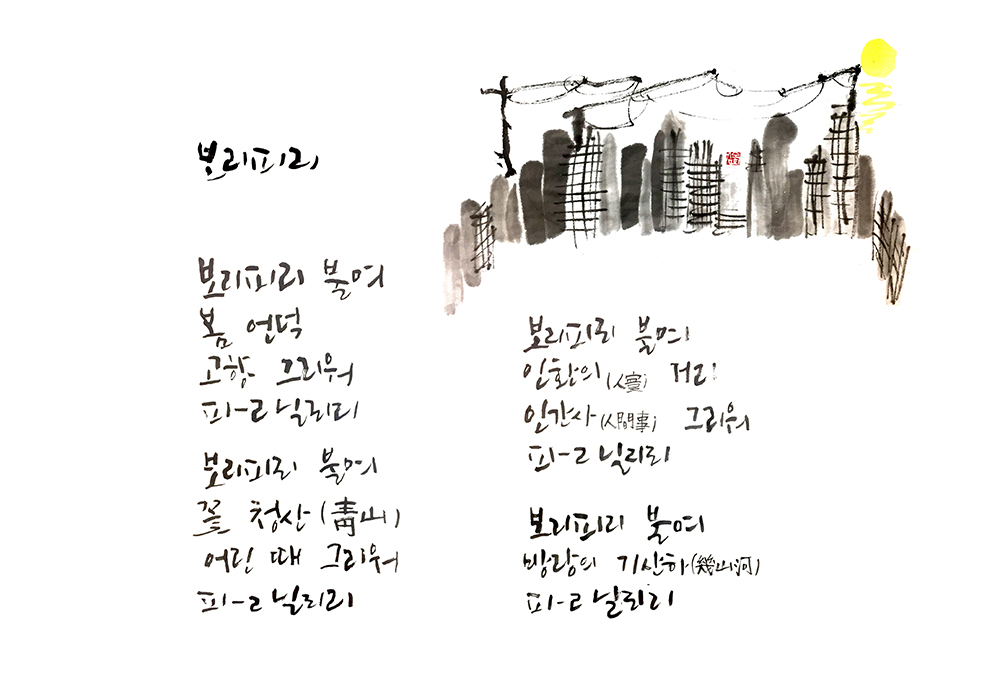 보리피리
보리피리 불며
봄 언덕
고향 그리워
피-ㄹ닐리리
보리피리 불며
꽃 청산(靑山)
어린 때 그리워
피-ㄹ닐리리
보리피리 불며
인환의(人寰) 거리
인간사(人間事) 그리워
피-ㄹ닐리리
보리피리 불며
방랑의 기산하(幾山河)
피-ㄹ닐리리